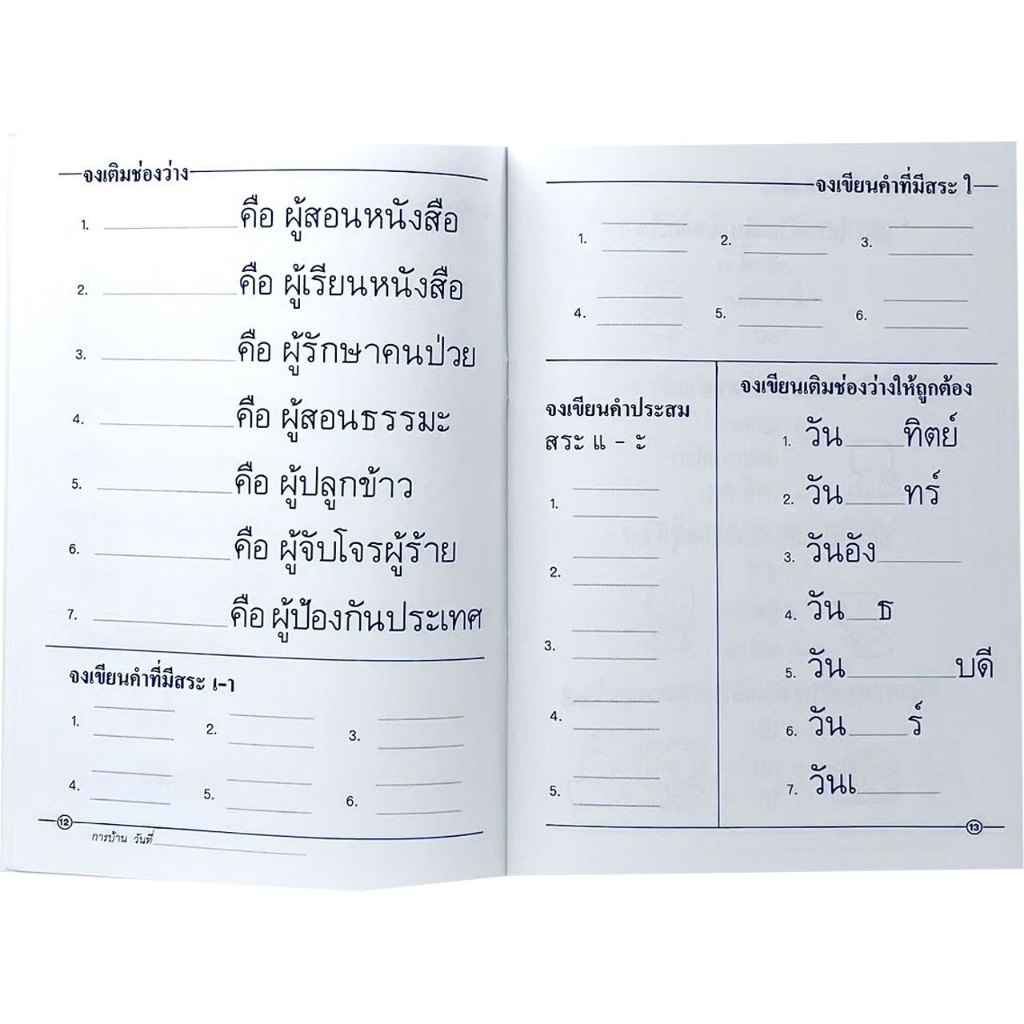 จงเติมช่องว่าง
1. ____________คือ ผู้สอนหนังสือ
2. ____________คือ ผู้เรียนหนังสือ
3. ____________คือ ผู้รักษาคนป่วย
4. ____________คือ ผู้สอนธรรมะ
5. ____________คือ ผู้ปลูกข้าว
6. ____________คือ ผู้จับโจรผู้ร้าย
7. ____________คือ ผู้ป้องกันประเทศ
จงเขียนคำที่มีสระ เ-า
1. 2. 3.
4. 5. 6.
12
การบ้าน วันที่____________
จงเขียนคำที่มีสระ ใ
1. 2. 3.
4. 5. 6.
จงเขียนคำประสม
สระ แ - ะ
1.
2.
3.
4.
5.
จงเขียนเติมช่องว่างให้ถูกต้อง
1. วัน____ทิตย์
2. วัน____ทร์
3. วันอัง______
4. วัน __ธ
5. วัน ________บดี
6. วัน ____ร์
7. วันเ______
13